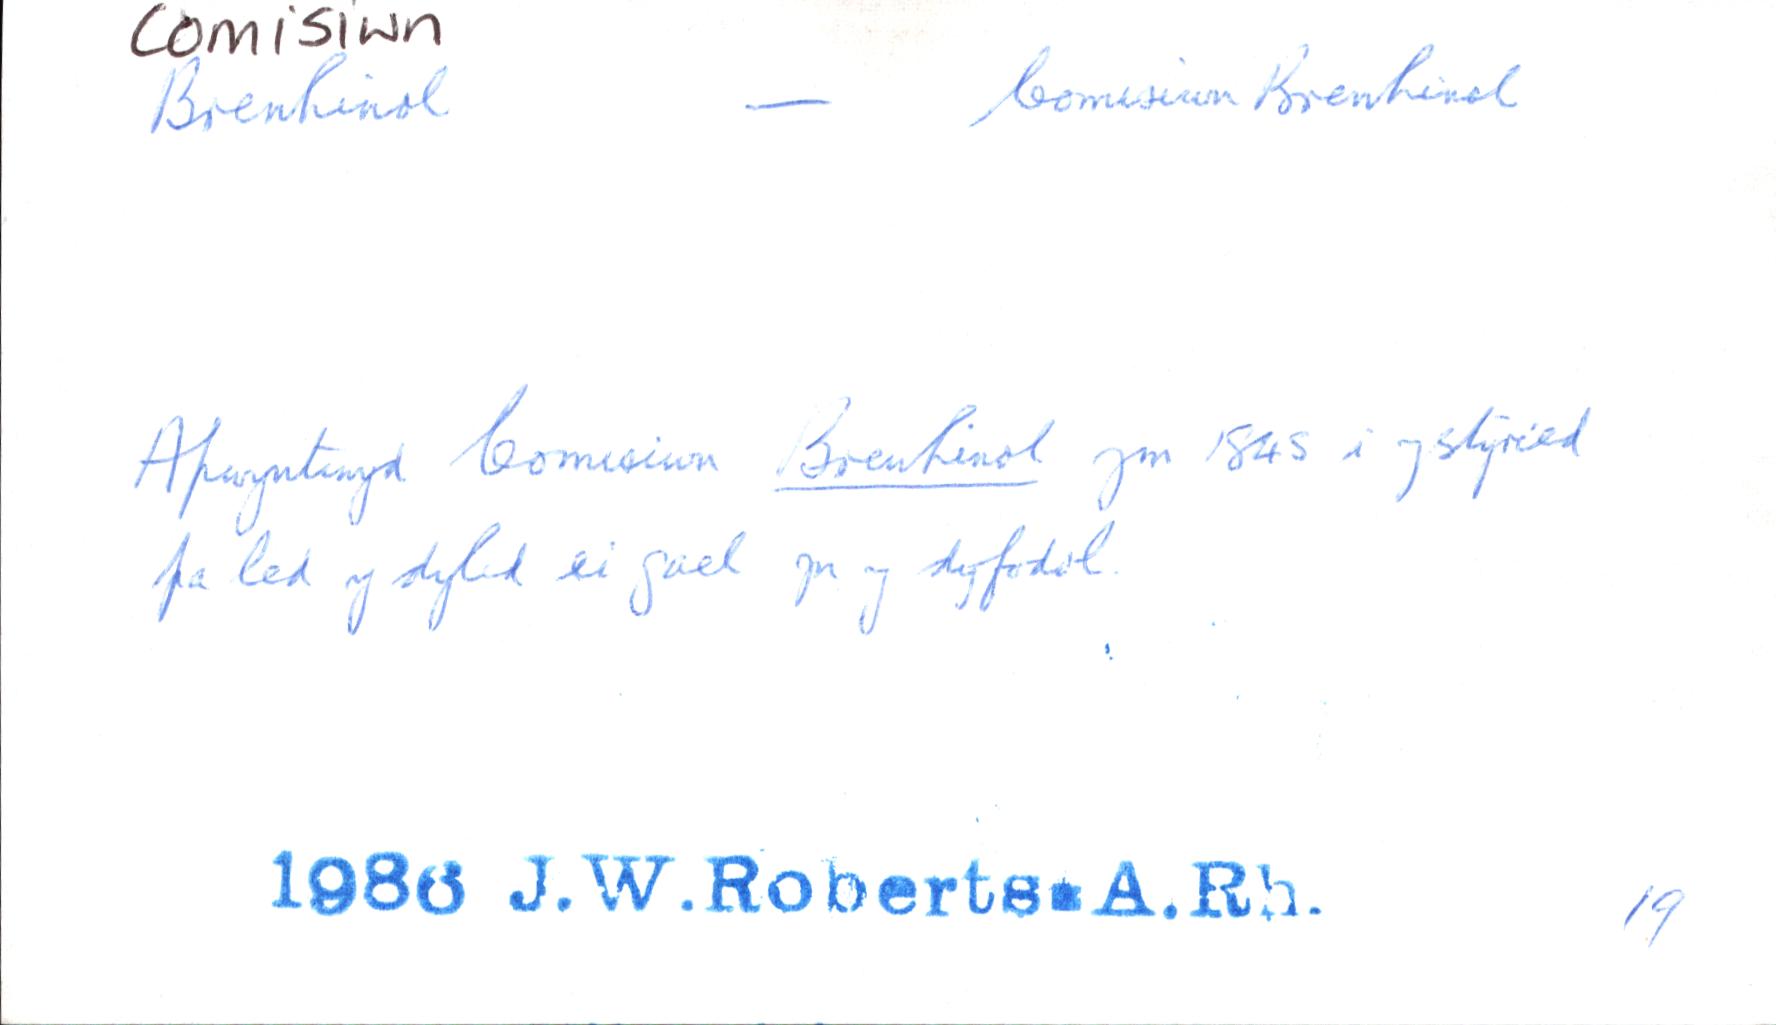 Comisiwn
Brenhinol — Comisiwn Brenhinol
Apwyntwyd Comisiwn Brenhinol ym 1845 i ystyried
pa led y dylid ei gael yn y dyfodol.
1986 J.W.Roberts. A.Rh.
19